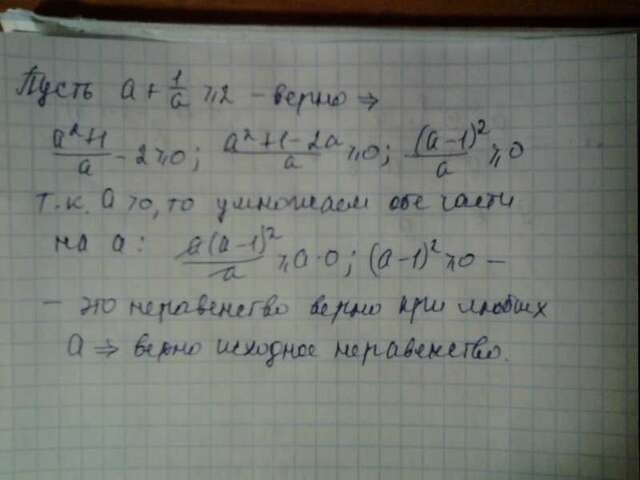 Пусть a + 1/a ⩾ 2 – верно ⇒
(a²+1)/a – 2 ⩾ 0; (a²+1–2a)/a ⩾ 0; (a–1)²/a ⩾ 0
т.к. a > 0, то умножаем обе части
на a: a(a–1)²/a ⩾ a·0; (a–1)² ⩾ 0 –
– это неравенство верно при любых
a ⇒ верно исходное неравенство.